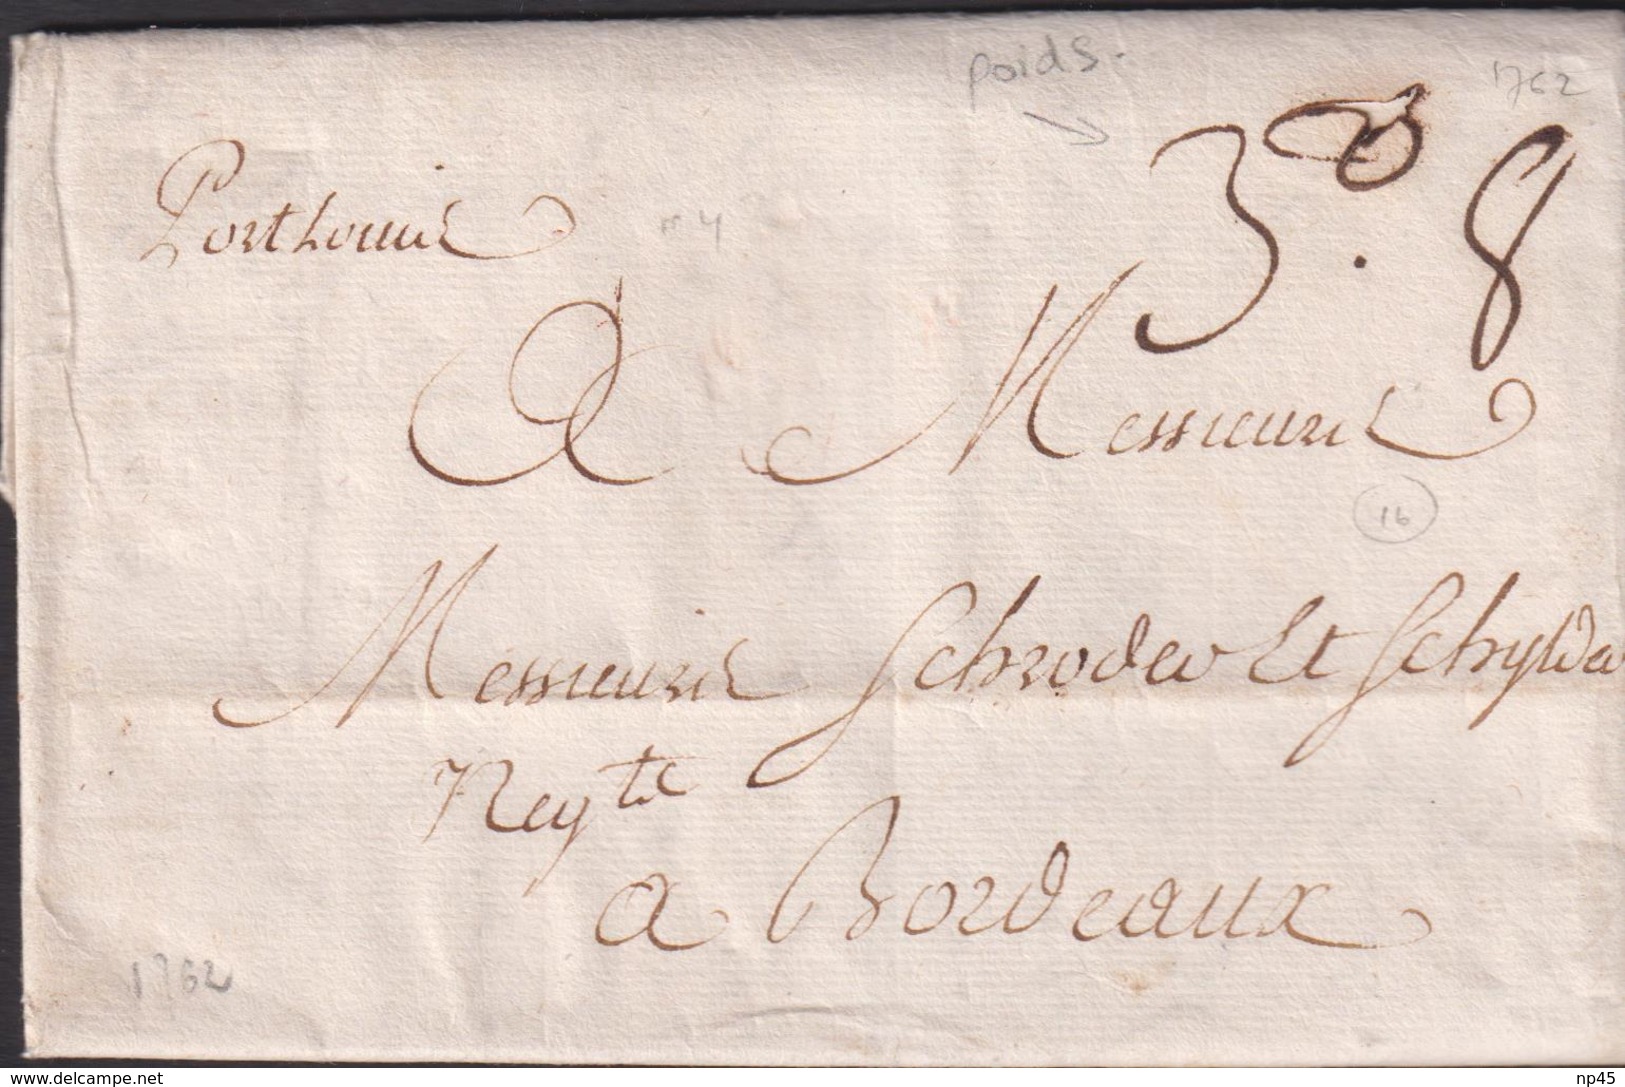 poids.
1762
3 8
Port Louis
n 4
A Messieurs
16
Messieurs Schroder Et Schylder
Negts
a Bordeaux
1762
www.delcampe.net
np45